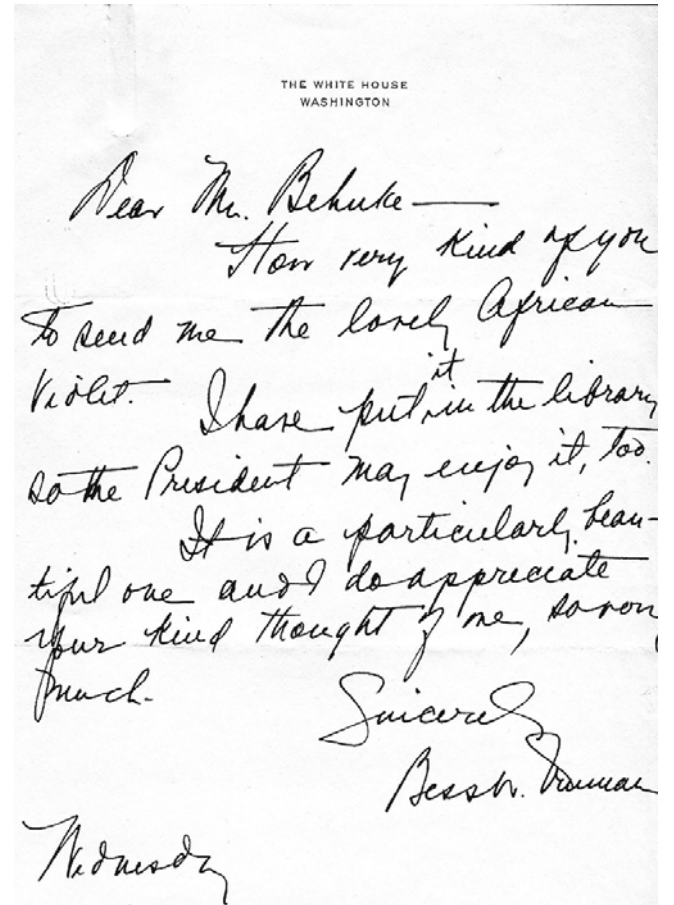 THE WHITE HOUSE
WASHINGTON
Dear Mr. Behnke —
How very kind of you
to send me the lovely African
Violet. I have put it in the library
so the President may enjoy it, too.
It is a particularly beau-
tiful one and I do appreciate
your kind thought of me, so very
much.
Sincerely
Bess W. Truman
Wednesday